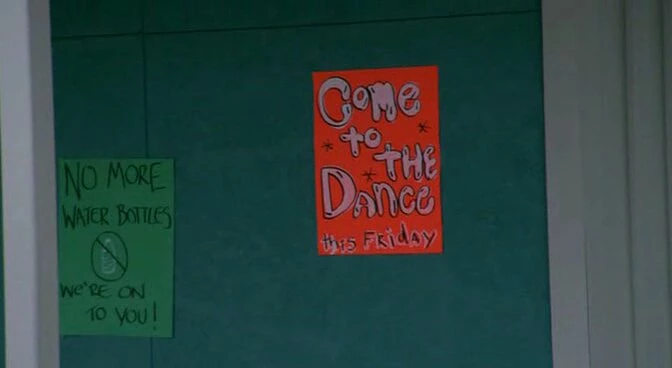 NO MORE
WATER BOTTLES
WE'RE ON
TO YOU!
Come
to
THE
Dance
this FRiday